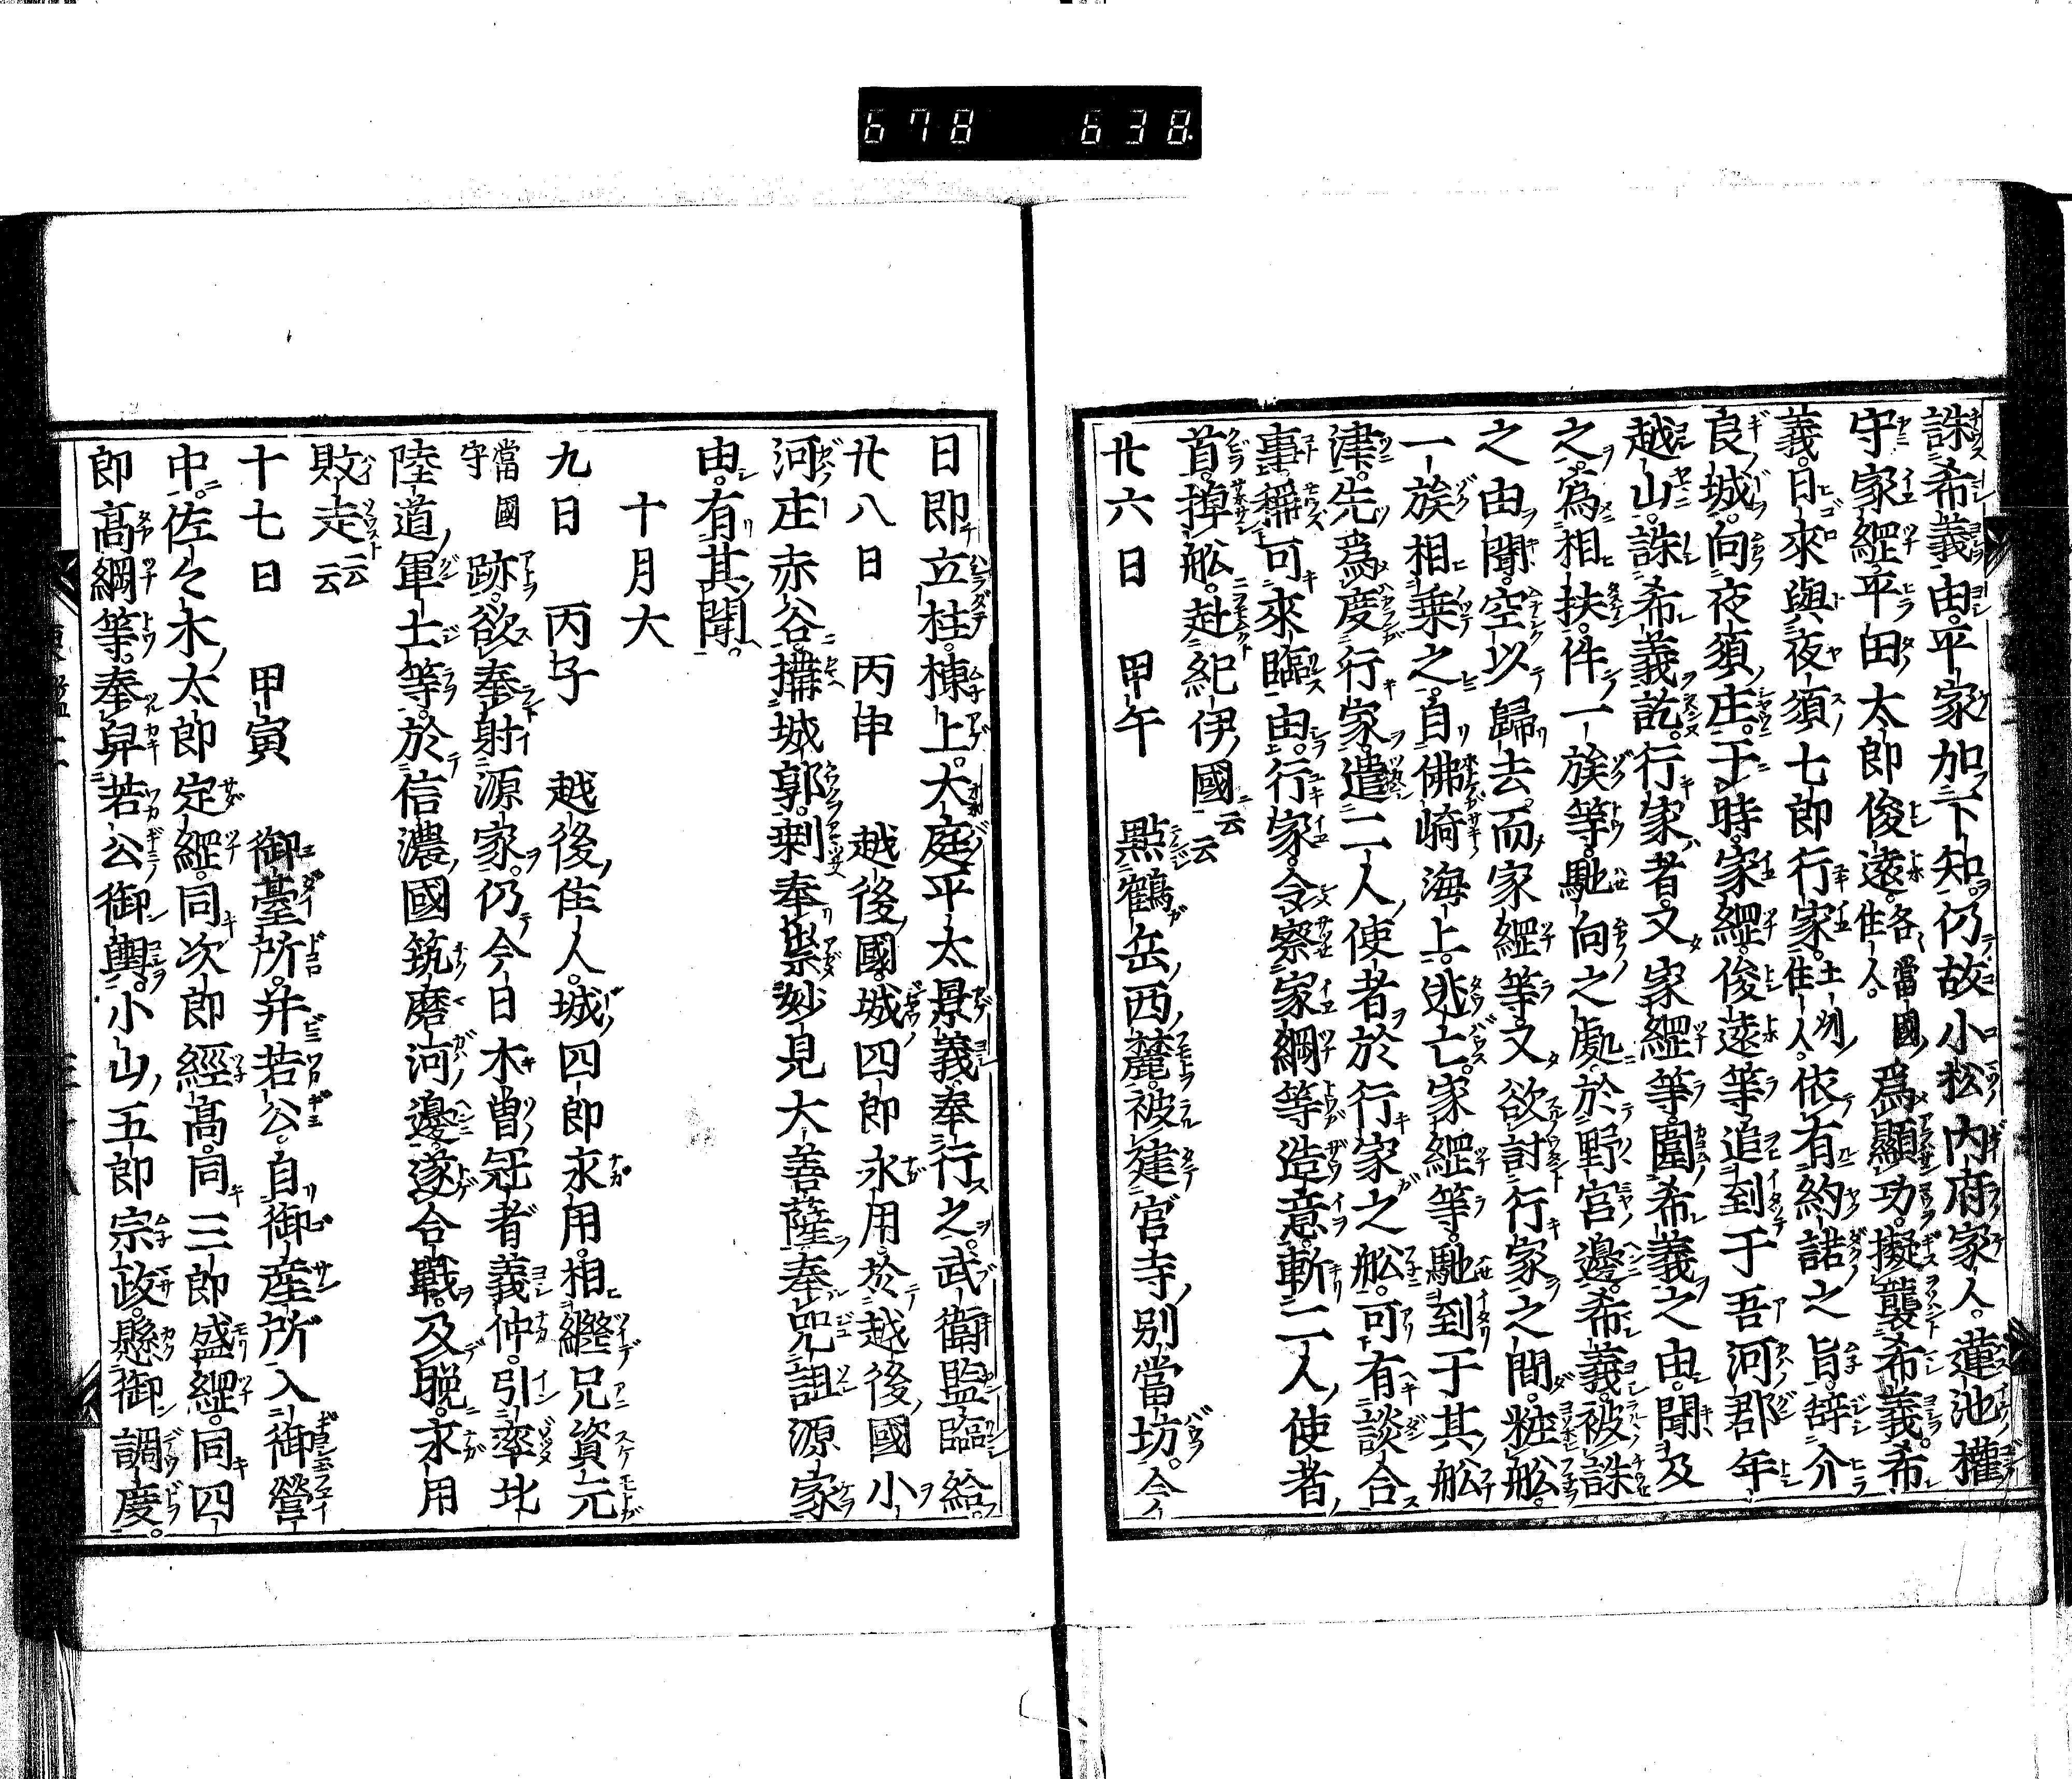 678 638
誅希義由。平家加下知。仍故小松内府家人。蓮池權
守家經平田太郎俊遠。各當國住人。爲顯功。擬襲希義。希
義。日來與夜須七郎行家。土州住人。依有約諾之旨。辞介
良城。向夜須庄。于時。家經。俊遠等。追到于吾河郡年
越山。誅希義訖。行家者。又家經等。圍希義之由。聞及
之。爲相扶。件一族等。馳向之處。於野宮邊。希義被誅
之由聞。空以歸去。而家經等又欲討行家之間。粧舩。
一族相乗之。自佛崎海上。逃亡。家經等。馳到于其舩
津。先爲度行家。遣二人使者於行家之舩。可有談合
事。稱可來臨由。行家。令察家綱等造意。斬二人使者
首。掉舩。赴紀伊國云云
廿六日 甲午 點鶴岳西麓。被建宮寺別當坊。今
日即立柱棟上。大庭平太景義。奉行之。武衛監臨給。
廿八日 丙申 越後國城四郎永用。於越後國小
河庄赤谷。搆城郭。剰奉崇妙見大菩薩。奉咒詛源家
由。有其聞。
十月大
九日 丙子 越後住人。城四郎永用。相繼兄資元
當國守 跡。欲奉射源家。仍今日木曽冠者義仲。引率北
陸道軍士等。於信濃國筑磨河邊。遂合戰。及晩。永用
敗走云云
十七日 甲寅 御臺所。并若公。自御産所入御營
中。佐々木太郎定經。同次郎經髙。同三郎盛經。同四
郎髙綱等。奉舁若公御輿。小山五郎宗政。懸御調度。